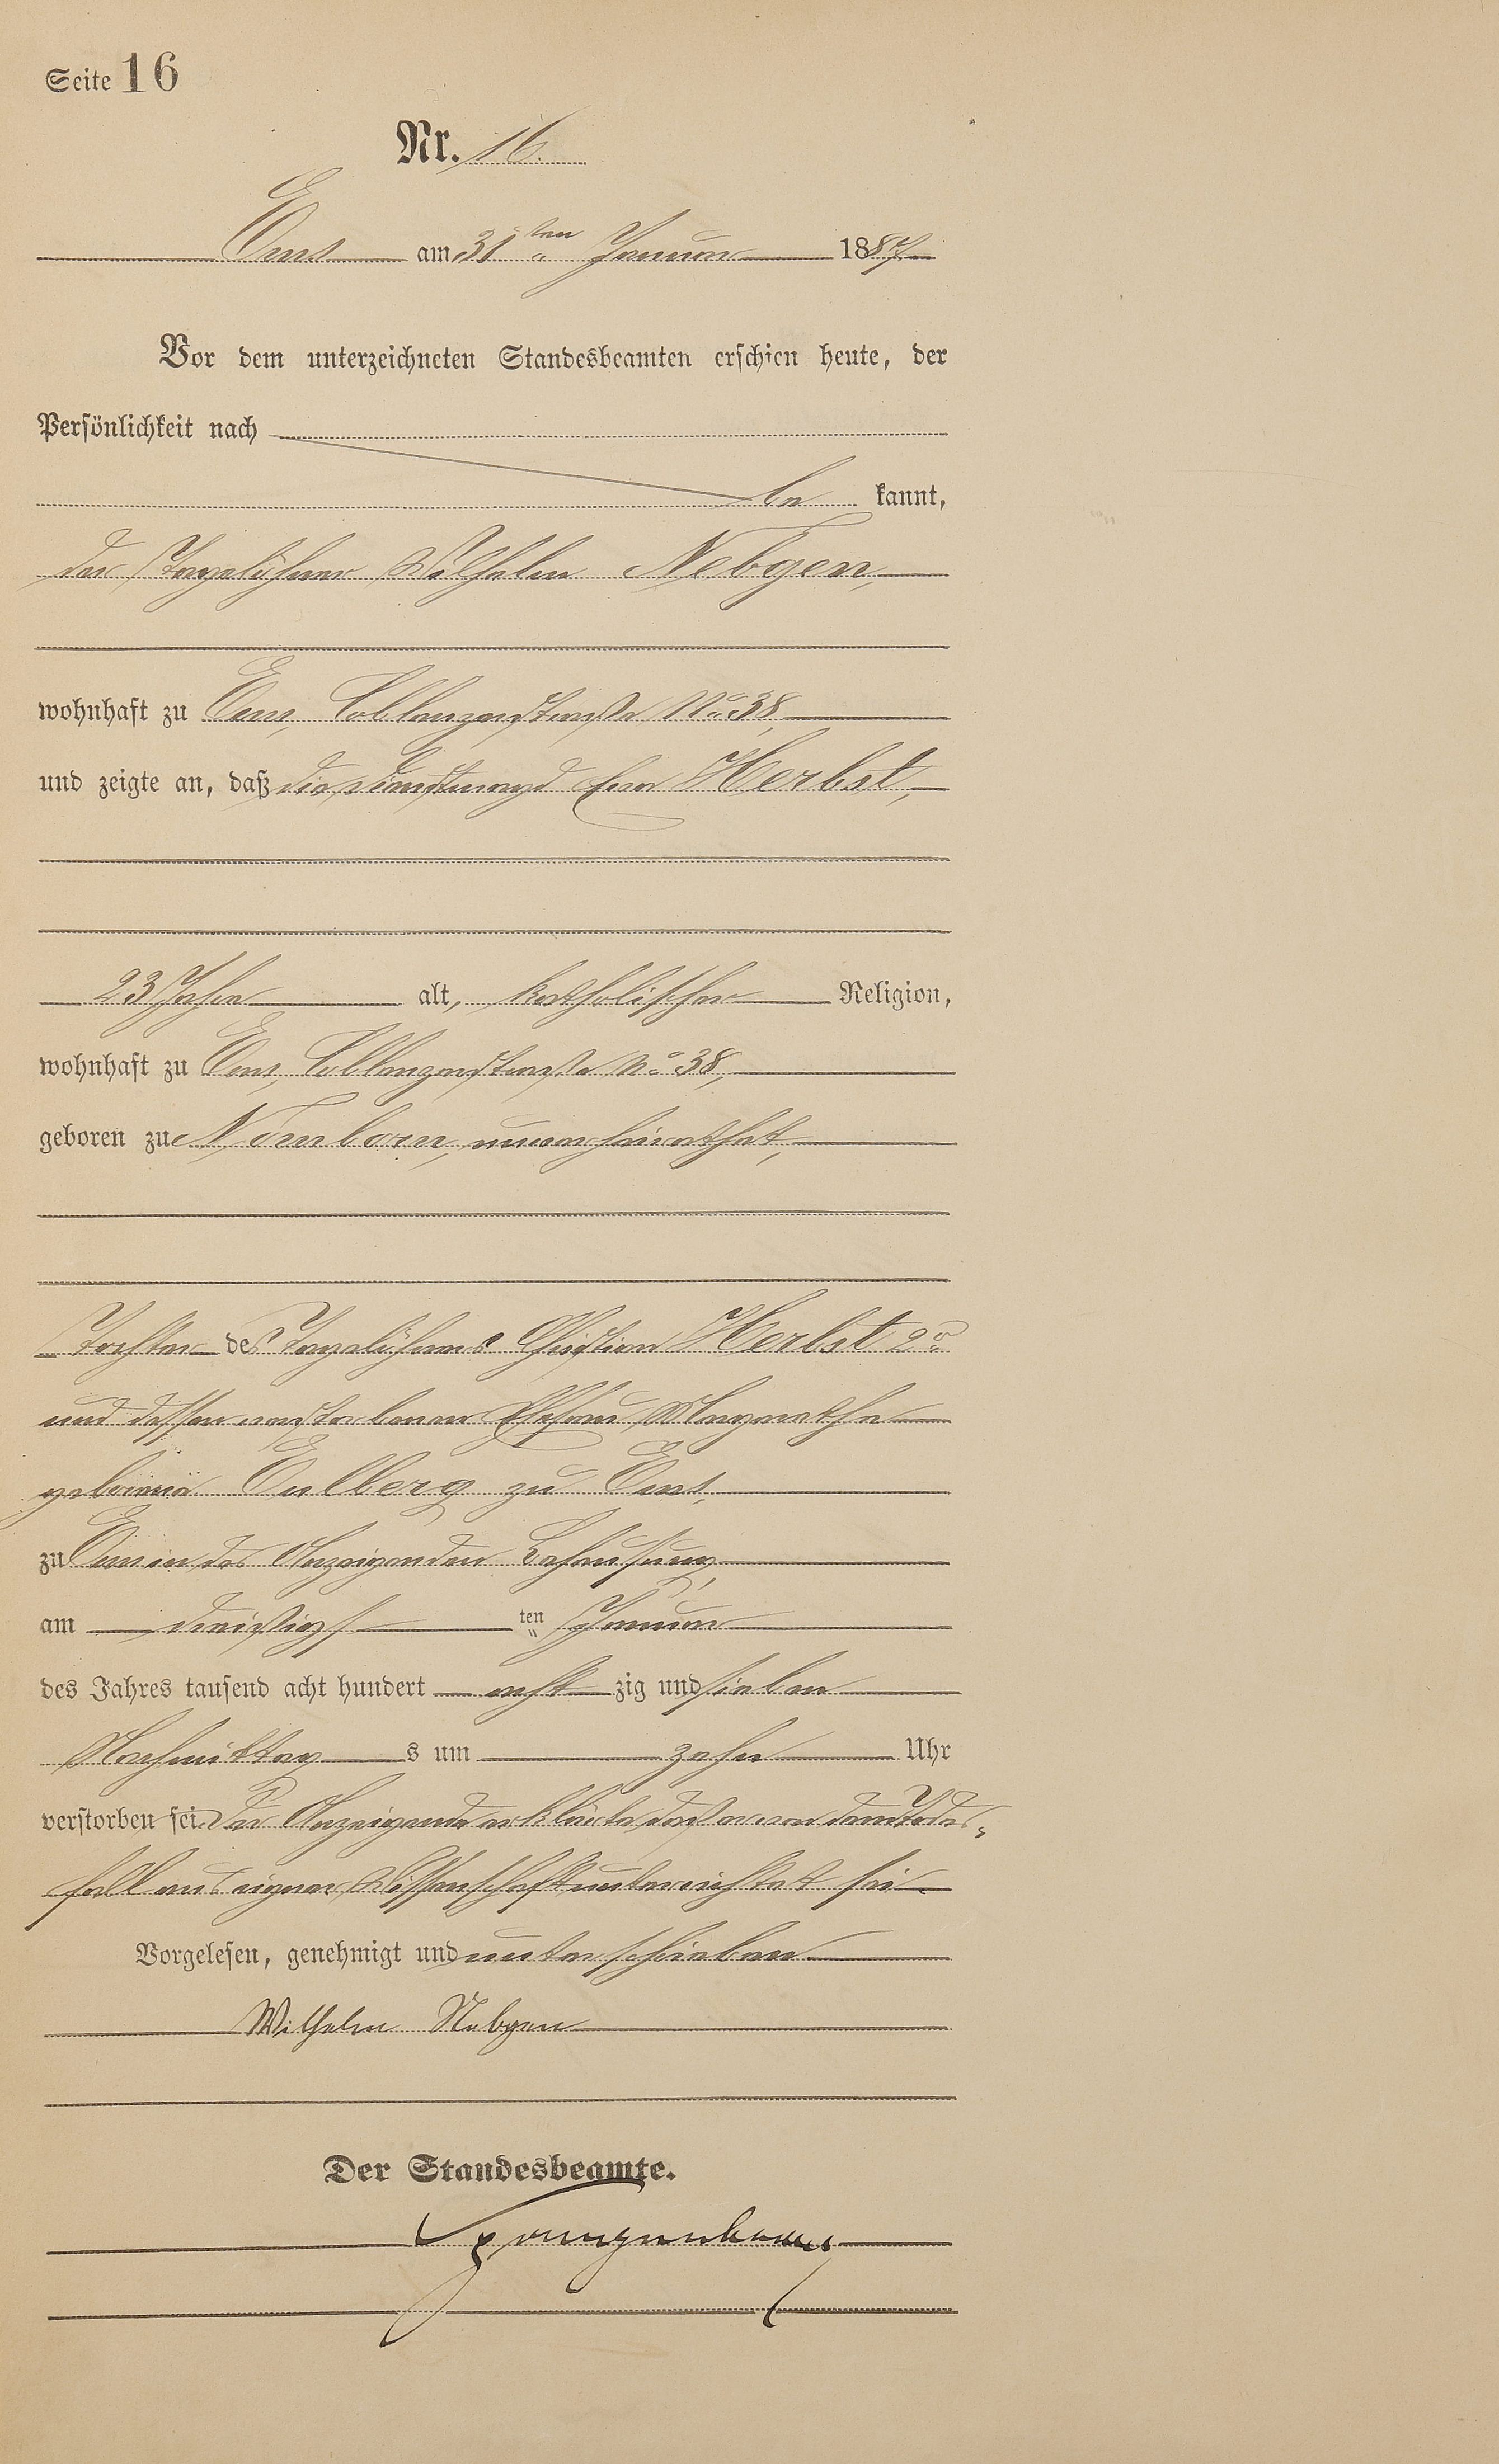 Seite 16
Nr. 16.
Ems am 31ten Januar 1887
Vor dem unterzeichneten Standesbeamten erschien heute, der
Persönlichkeit nach
be kannt,
der Tagelöhner Wilhelm Nebgen,
wohnhaft zu Ems, Coblenzerstraße No 38,
und zeigte an, daß die Dienstmagd Eva Herbst,
23 Jahre alt, katholischer Religion,
wohnhaft zu Ems, Coblenzerstraße No 38,
geboren zu Nomborn, unverheirathet,
Tochter des Tagelöhners Christian Herbst 2r
und dessen verstorbenen Ehefrau Margarethe
geborene Eulberg zu Ems,
zu Ems in des Anzeigenden Behausung,
am dreißigs ten Januar
des Jahres tausend acht hundert acht zig und sieben
Nachmittag s um zehn Uhr
verstorben sei. Der Anzeigende erklärte, daß er von dem Todes-
fall aus eigener Wissenschaft unterrichtet sei.
Vorgelesen, genehmigt und unterschrieben
Wilhelm Nebgen
Der Standesbeamte.